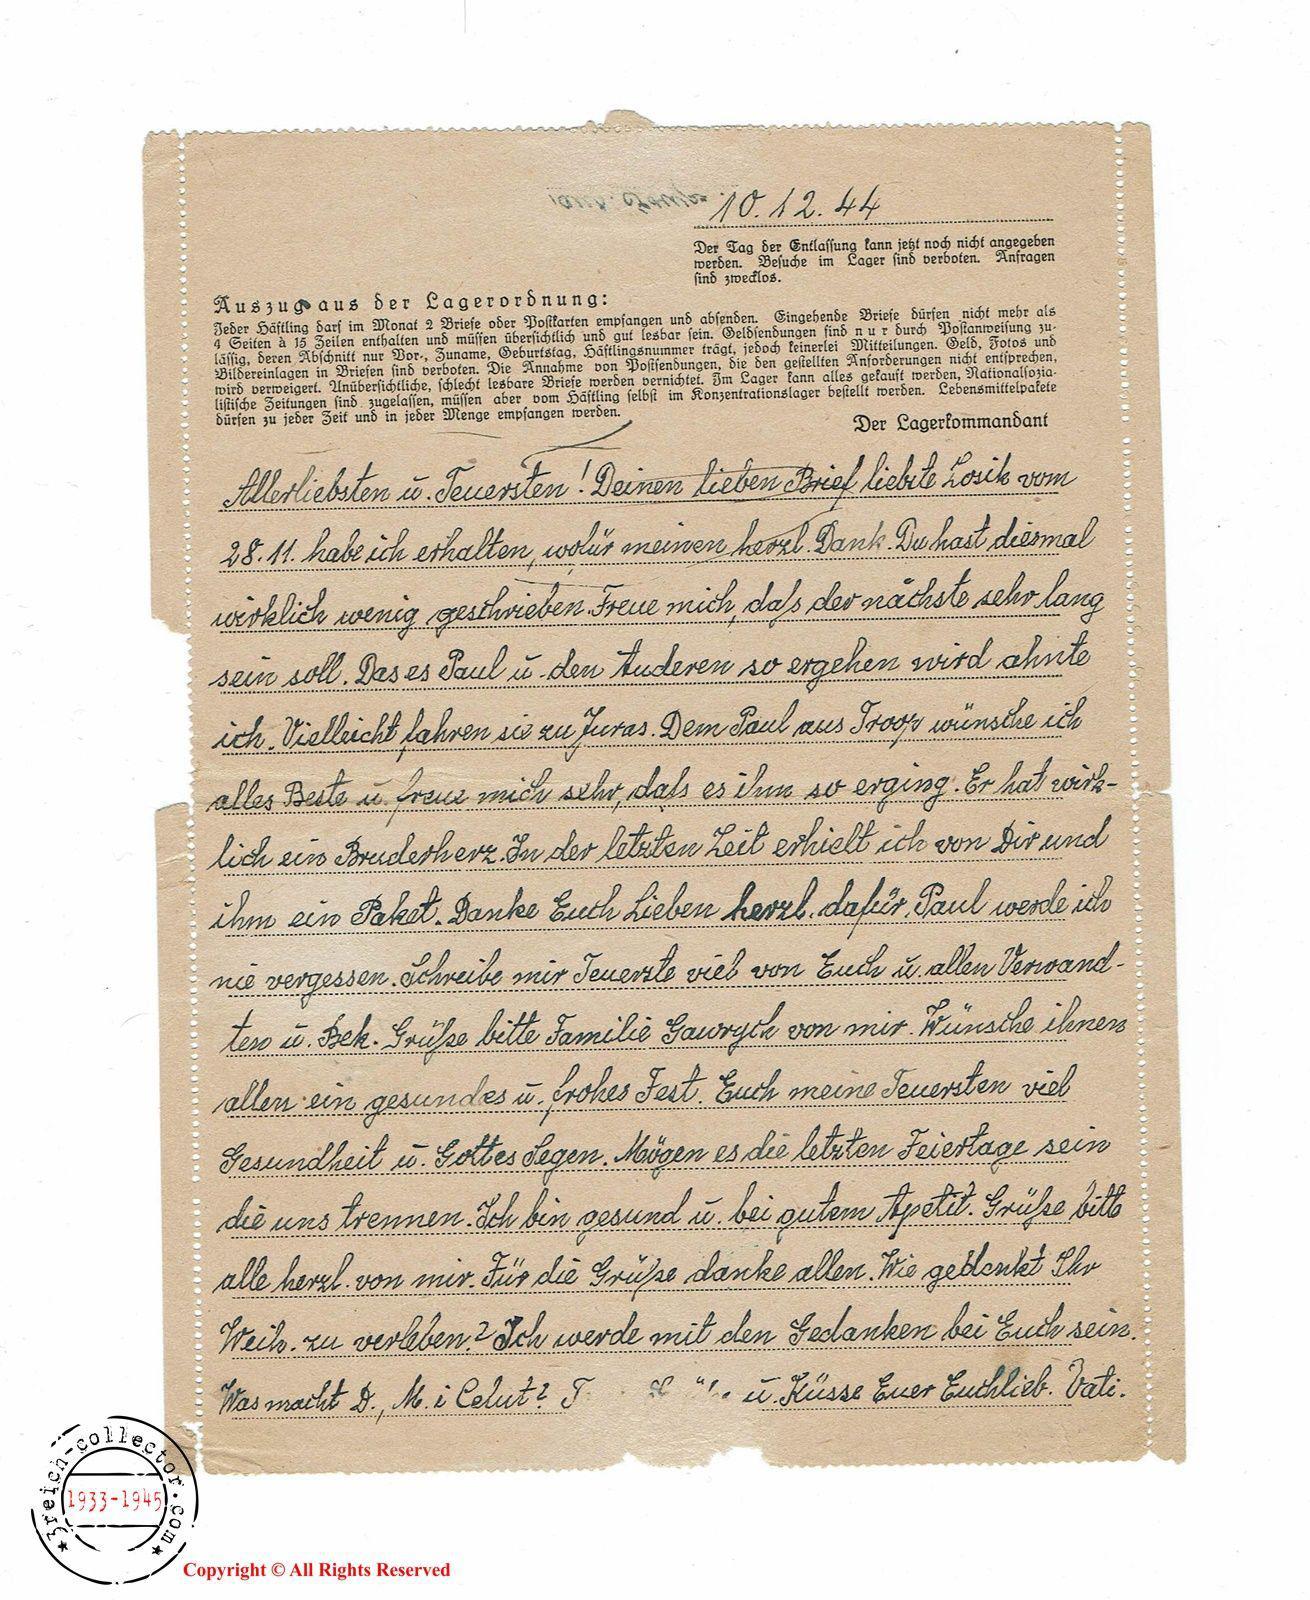 10.12.44
Der Tag der Entlassung kann jetzt noch nicht angegeben
werden. Besuche im Lager sind verboten. Anfragen
sind zwecklos.
Auszug aus der Lagerordnung:
Jeder Häftling darf im Monat 2 Briefe oder Postkarten empfangen und absenden. Eingehende Briefe dürfen nicht mehr als
4 Seiten à 15 Zeilen enthalten und müssen übersichtlich und gut lesbar sein. Geldsendungen sind nur durch Postanweisung zu-
lässig, deren Abschnitt nur Vor-, Zuname, Geburtstag, Häftlingsnummer trägt, jedoch keinerlei Mitteilungen. Geld, Fotos und
Bildereinlagen in Briefen sind verboten. Die Annahme von Postsendungen, die den gestellten Anforderungen nicht entsprechen,
wird verweigert. Unübersichtliche, schlecht lesbare Briefe werden vernichtet. Im Lager kann alles gekauft werden, Nationalsozia-
listische Zeitungen sind zugelassen, müssen aber vom Häftling selbst im Konzentrationslager bestellt werden. Lebensmittelpakete
dürfen zu jeder Zeit und in jeder Menge empfangen werden.
Der Lagerkommandant
Allerliebsten u. Teuersten! Deinen lieben Brief liebste Losik vom
28.11. habe ich erhalten, wofür meinen herzl. Dank. Du hast diesmal
wirklich wenig geschrieben. Freue mich, dass der nächste sehr lang
sein soll. Das es Paul u. den Anderen so ergehen wird ahnte
ich. Vielleicht fahren sie zu Juras. Dem Paul aus Troop wünsche ich
alles Beste u. freue mich sehr, dass es ihm so erging. Er hat wirk-
lich ein Bruderherz. In der letzten Zeit erhielt ich von Dir und
ihm ein Paket. Danke Euch Lieben herzl. dafür. Paul werde ich
nie vergessen. Schreibe mir Teuerste viel von Euch u. allen Verwand-
ten u. Bek. Grüße bitte Familie Gawrych von mir. Wünsche ihnen
allen ein gesundes u. frohes Fest. Euch meine Teuersten viel
Gesundheit u. Gottes Segen. Mögen es die letzten Feiertage sein
die uns trennen. Ich bin gesund u. bei gutem Apetit. Grüße bitte
alle herzl. von mir. Für die Grüße danke allen. Wie gedenkt Ihr
Weih. zu verleben? Ich werde mit den Gedanken bei Euch sein.
Was macht D., M. i Celut? u. Küsse Euer Euchlieb. Vati.
3reich-collector.com
1933-1945
Copyright © All Rights Reserved